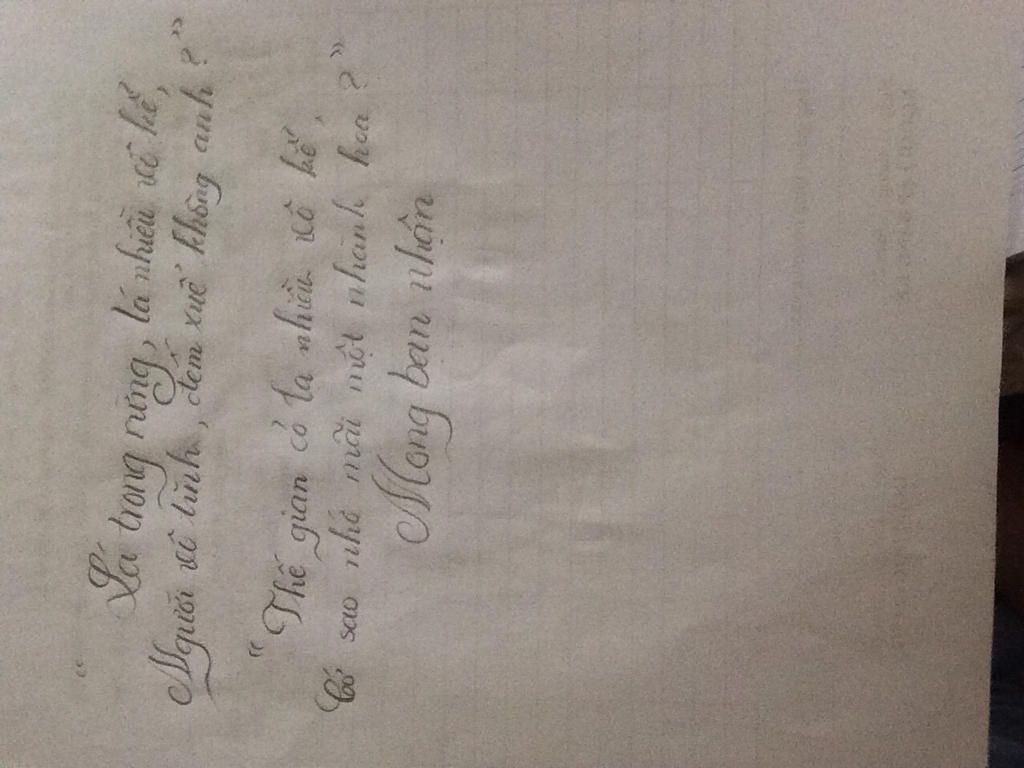 "Lá trong rừng, lá nhiều vô kể,
Người vô tình, đếm xuể không anh?"
"Thế gian có la nhiều vô kể,
Cớ sao nhớ mãi một nhành hoa?"
Mong bạn nhận